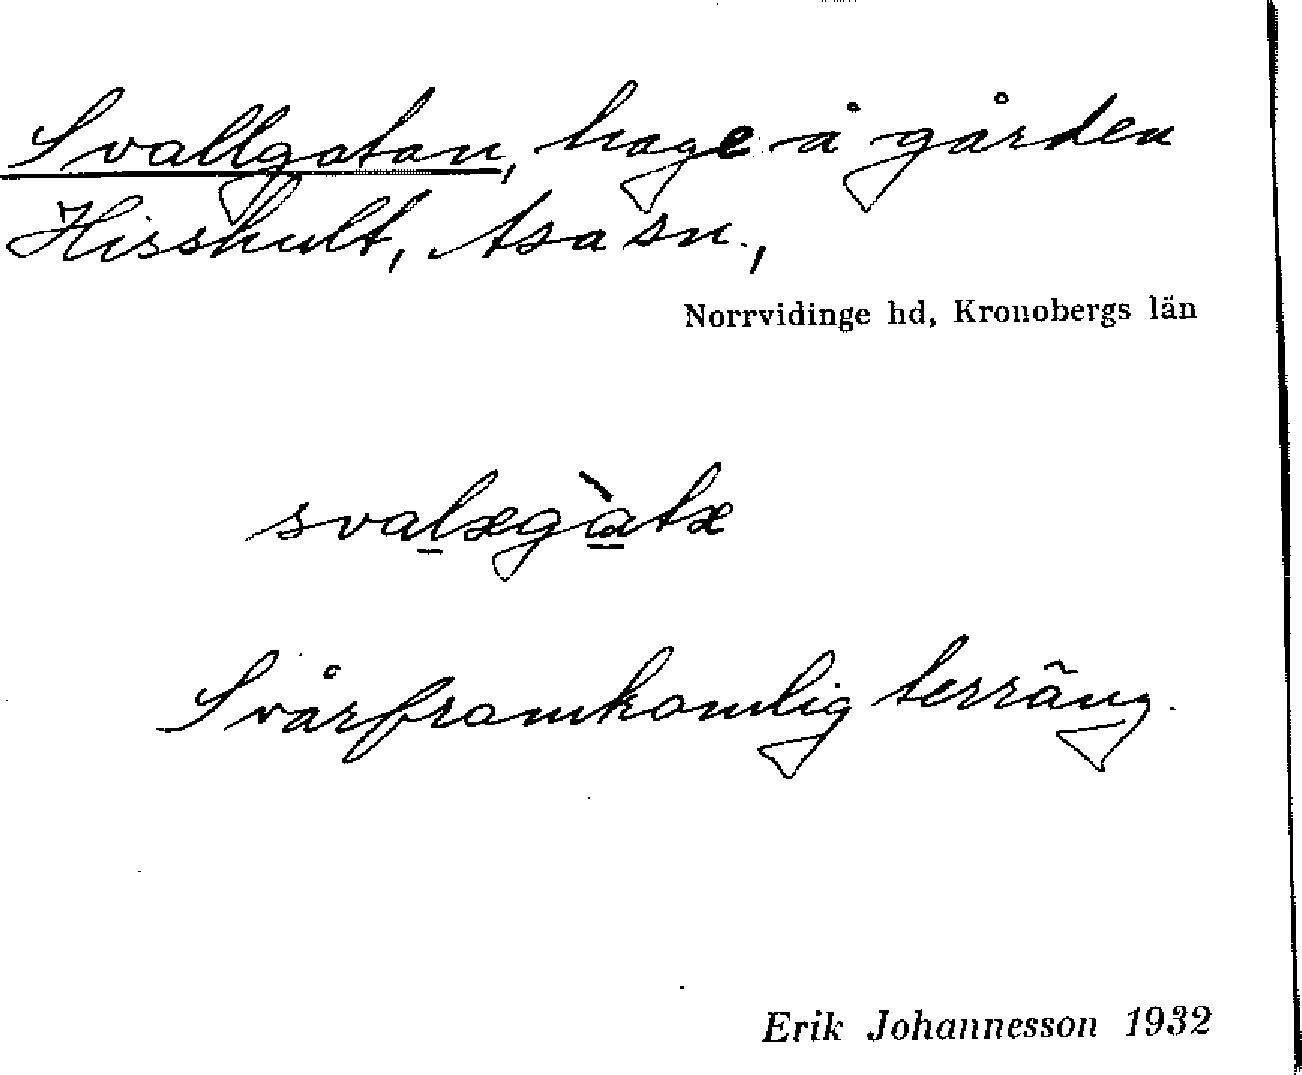 Svallgatan, hage å gården
Hisshult, Asa sn.,
Norrvidinge hd, Kronobergs län
svalægàtæ
Svårframkomlig terräng.
Erik Johannesson 1932